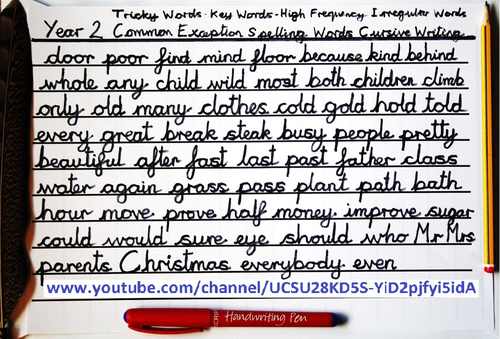 Tricky Words-Key Words-High Frequency Irregular Words
Year 2 Common Exception Spelling Words Cursive Writing
door poor find mind floor because kind behind
whole any child wild most both children climb
only old many clothes cold gold hold told
every great break steak busy people pretty
beautiful after fast last past father class
water again grass pass plant path bath
hour move prove half money improve sugar
could would sure eye should who Mr Mrs
parents Christmas everybody even
www.youtube.com/channel/UCSU28KD5S-YiD2pjfyi5idA
Handwriting Pen